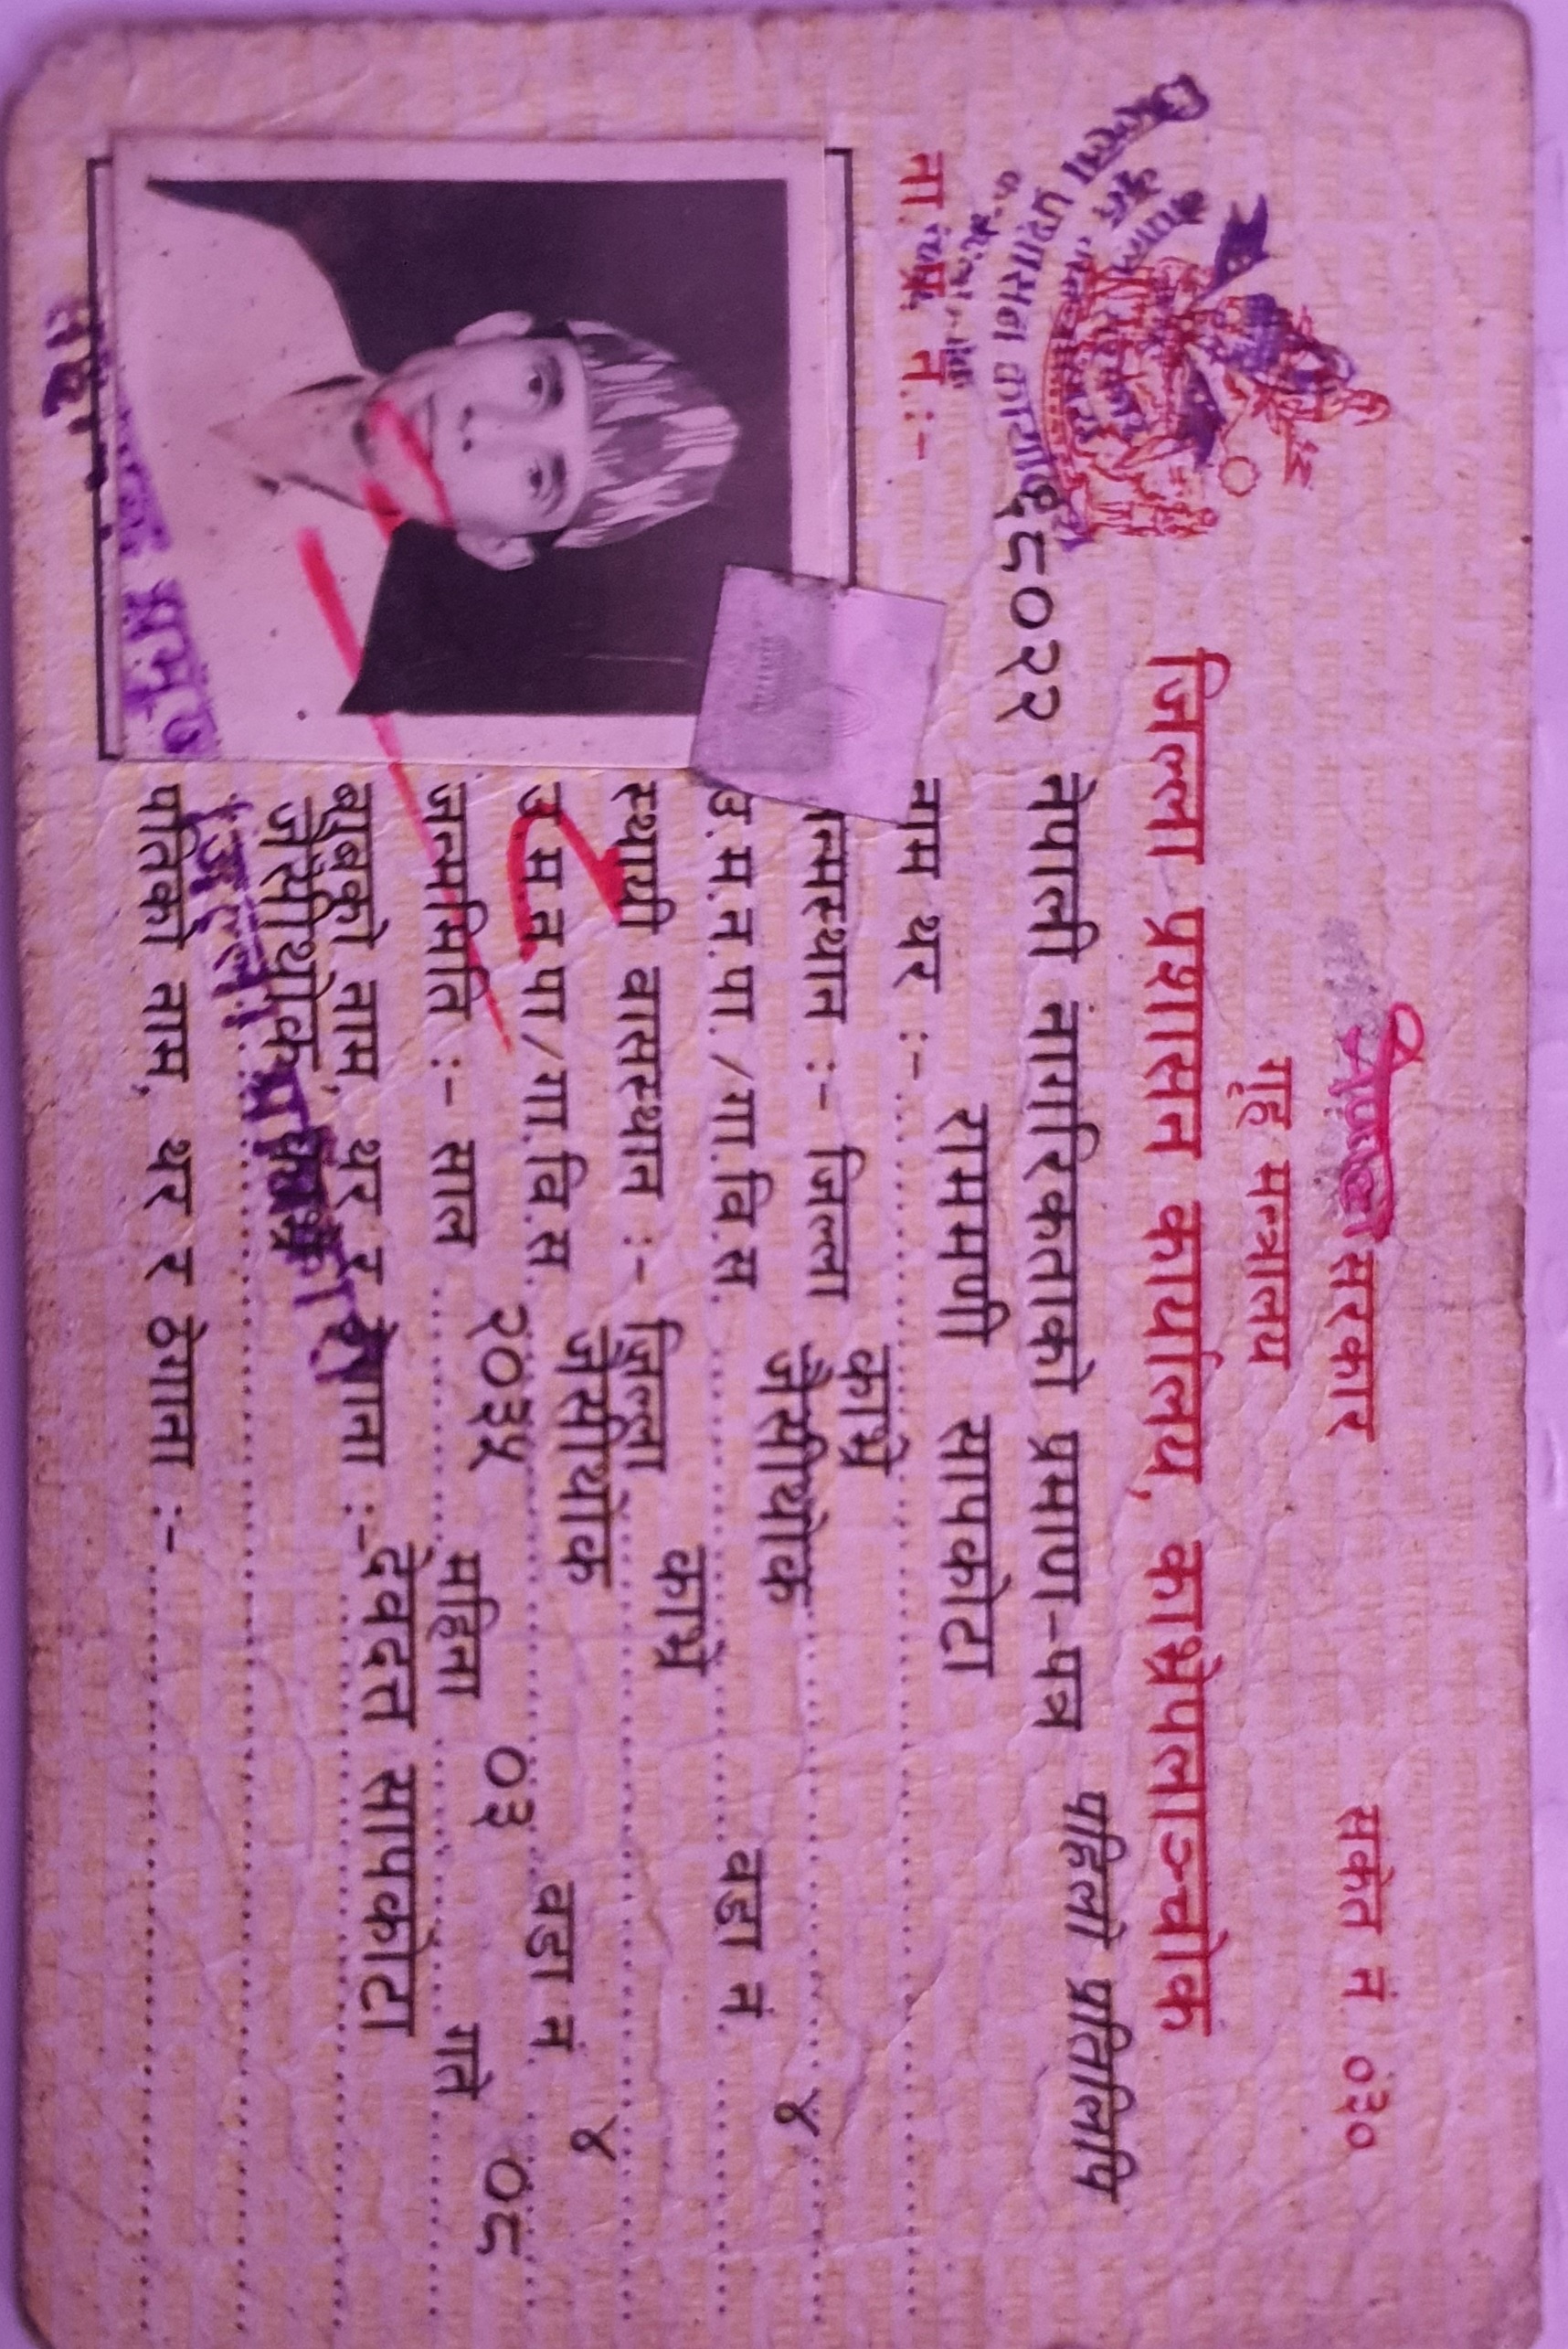 सरकार
संकेत नं. ०३०
गृह मन्त्रालय
जिल्ला प्रशासन कार्यालय, काभ्रेपलाञ्चोक
नेपाली नागरिकताको प्रमाण-पत्र पहिलो प्रतिलिपि
ना. प्र. नं. :- १८०२२
नाम थर :- राममणी सापकोटा
जन्मस्थान :- जिल्ला काभ्रे
उ.म.न.पा./गा.वि.स. जैसीथोक वडा नं. ४
स्थायी वासस्थान :- जिल्ला काभ्रे
उ.म.न.पा/गा.वि.स. जैसीथोक वडा नं. ४
जन्ममिति :- साल २०३५ महिना ०३ गते ०८
बाबुको नाम, थर र ठेगाना :- देवदत्त सापकोटा
जैसीथोक काभ्रे
पतिको नाम, थर र ठेगाना :-